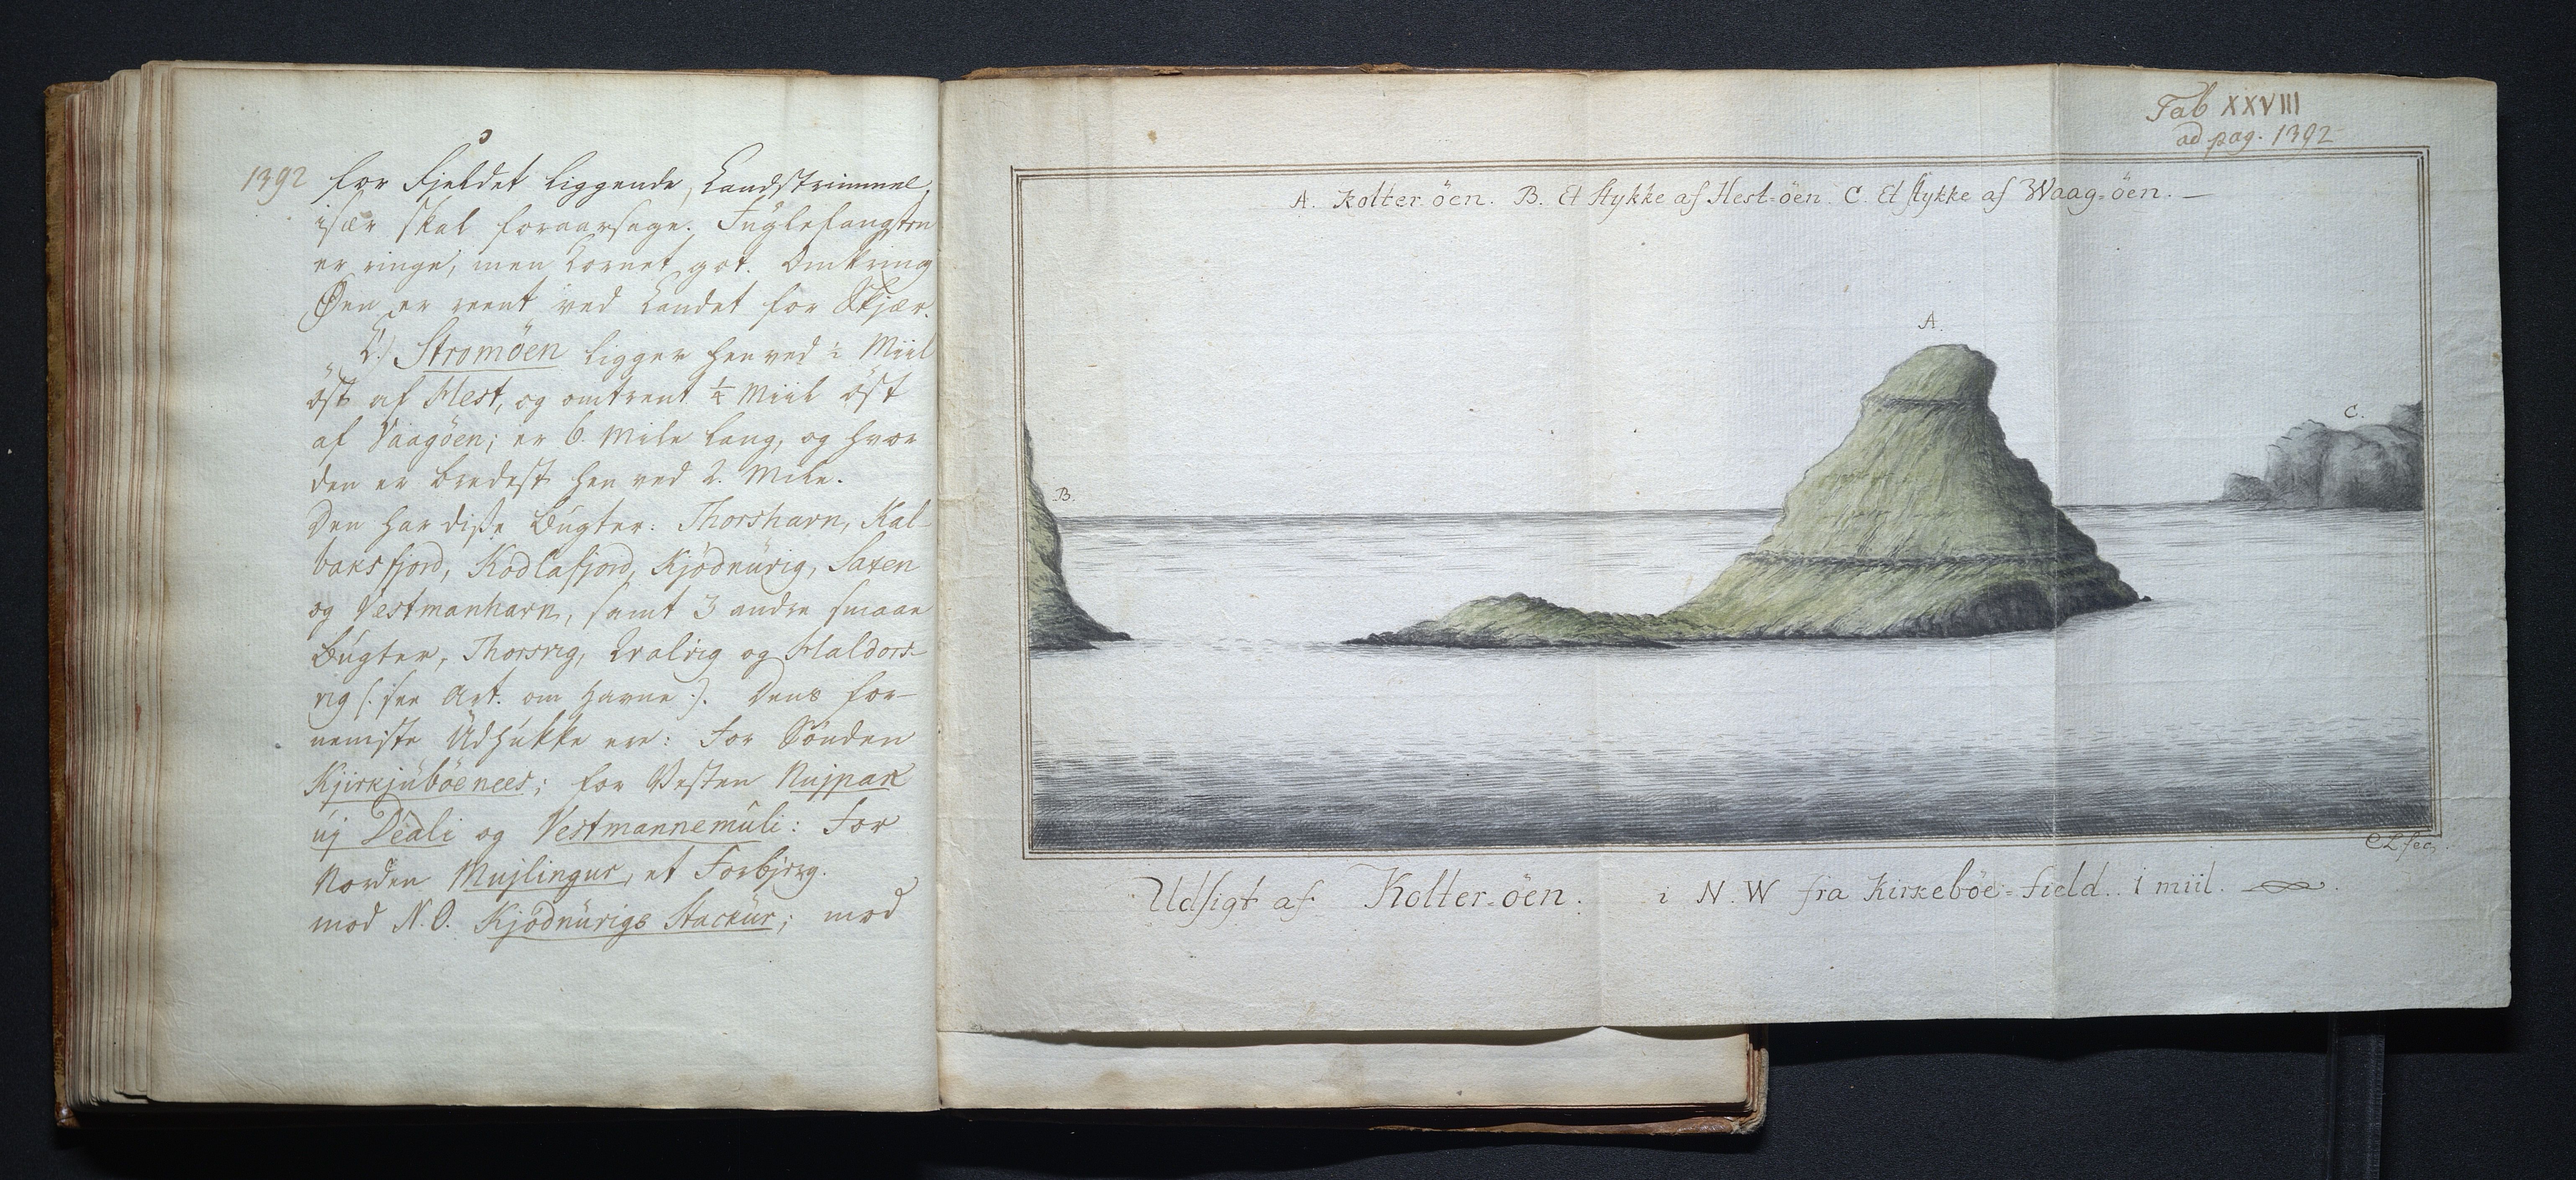 1392 for Fjeldet liggende, Landstrimmel,
især skal foraarsage. Fuglefangsten
er ringe, men Kornet got. Omkring
Øen er reent ved Landet for Skjær.
Strömöen ligger henved ½ Miil
öst af Hest, og omtrent ¼ Miil öst
af Vaagöen; er 6. Mile lang, og hvor
den er bredest henved 2. Mile.
Den har diße Bugter: Thorshavn, Kal-
baksfjord, Kodlafjord, Kjödnúvig, Saxen
og Vestmanhavn, samt 3 andre smaae
Bugter, Thorsvig, Qvalvig og Haldors-
vig (: see Art. om Havne :). Dens for-
nemste Udhúkke ere: For Sönden
Kjirkjuböenees; for Vesten Nujpan
új Deali og Vestmannemúli: For
Norden Mujlingur, et Forbjerg.
mod N.O. Kjödnúvigs Stackúr; mod
Tab XXVIII
ad pag. 1392
A. Kolter öen. B. Et Stykke af Hest=öen. C. Et stykke af Waag=öen.
A.
C.
B.
CL fec.
Udsigt af Kolter=öen. i N.W fra Kirkeböe=field. 1 miil.